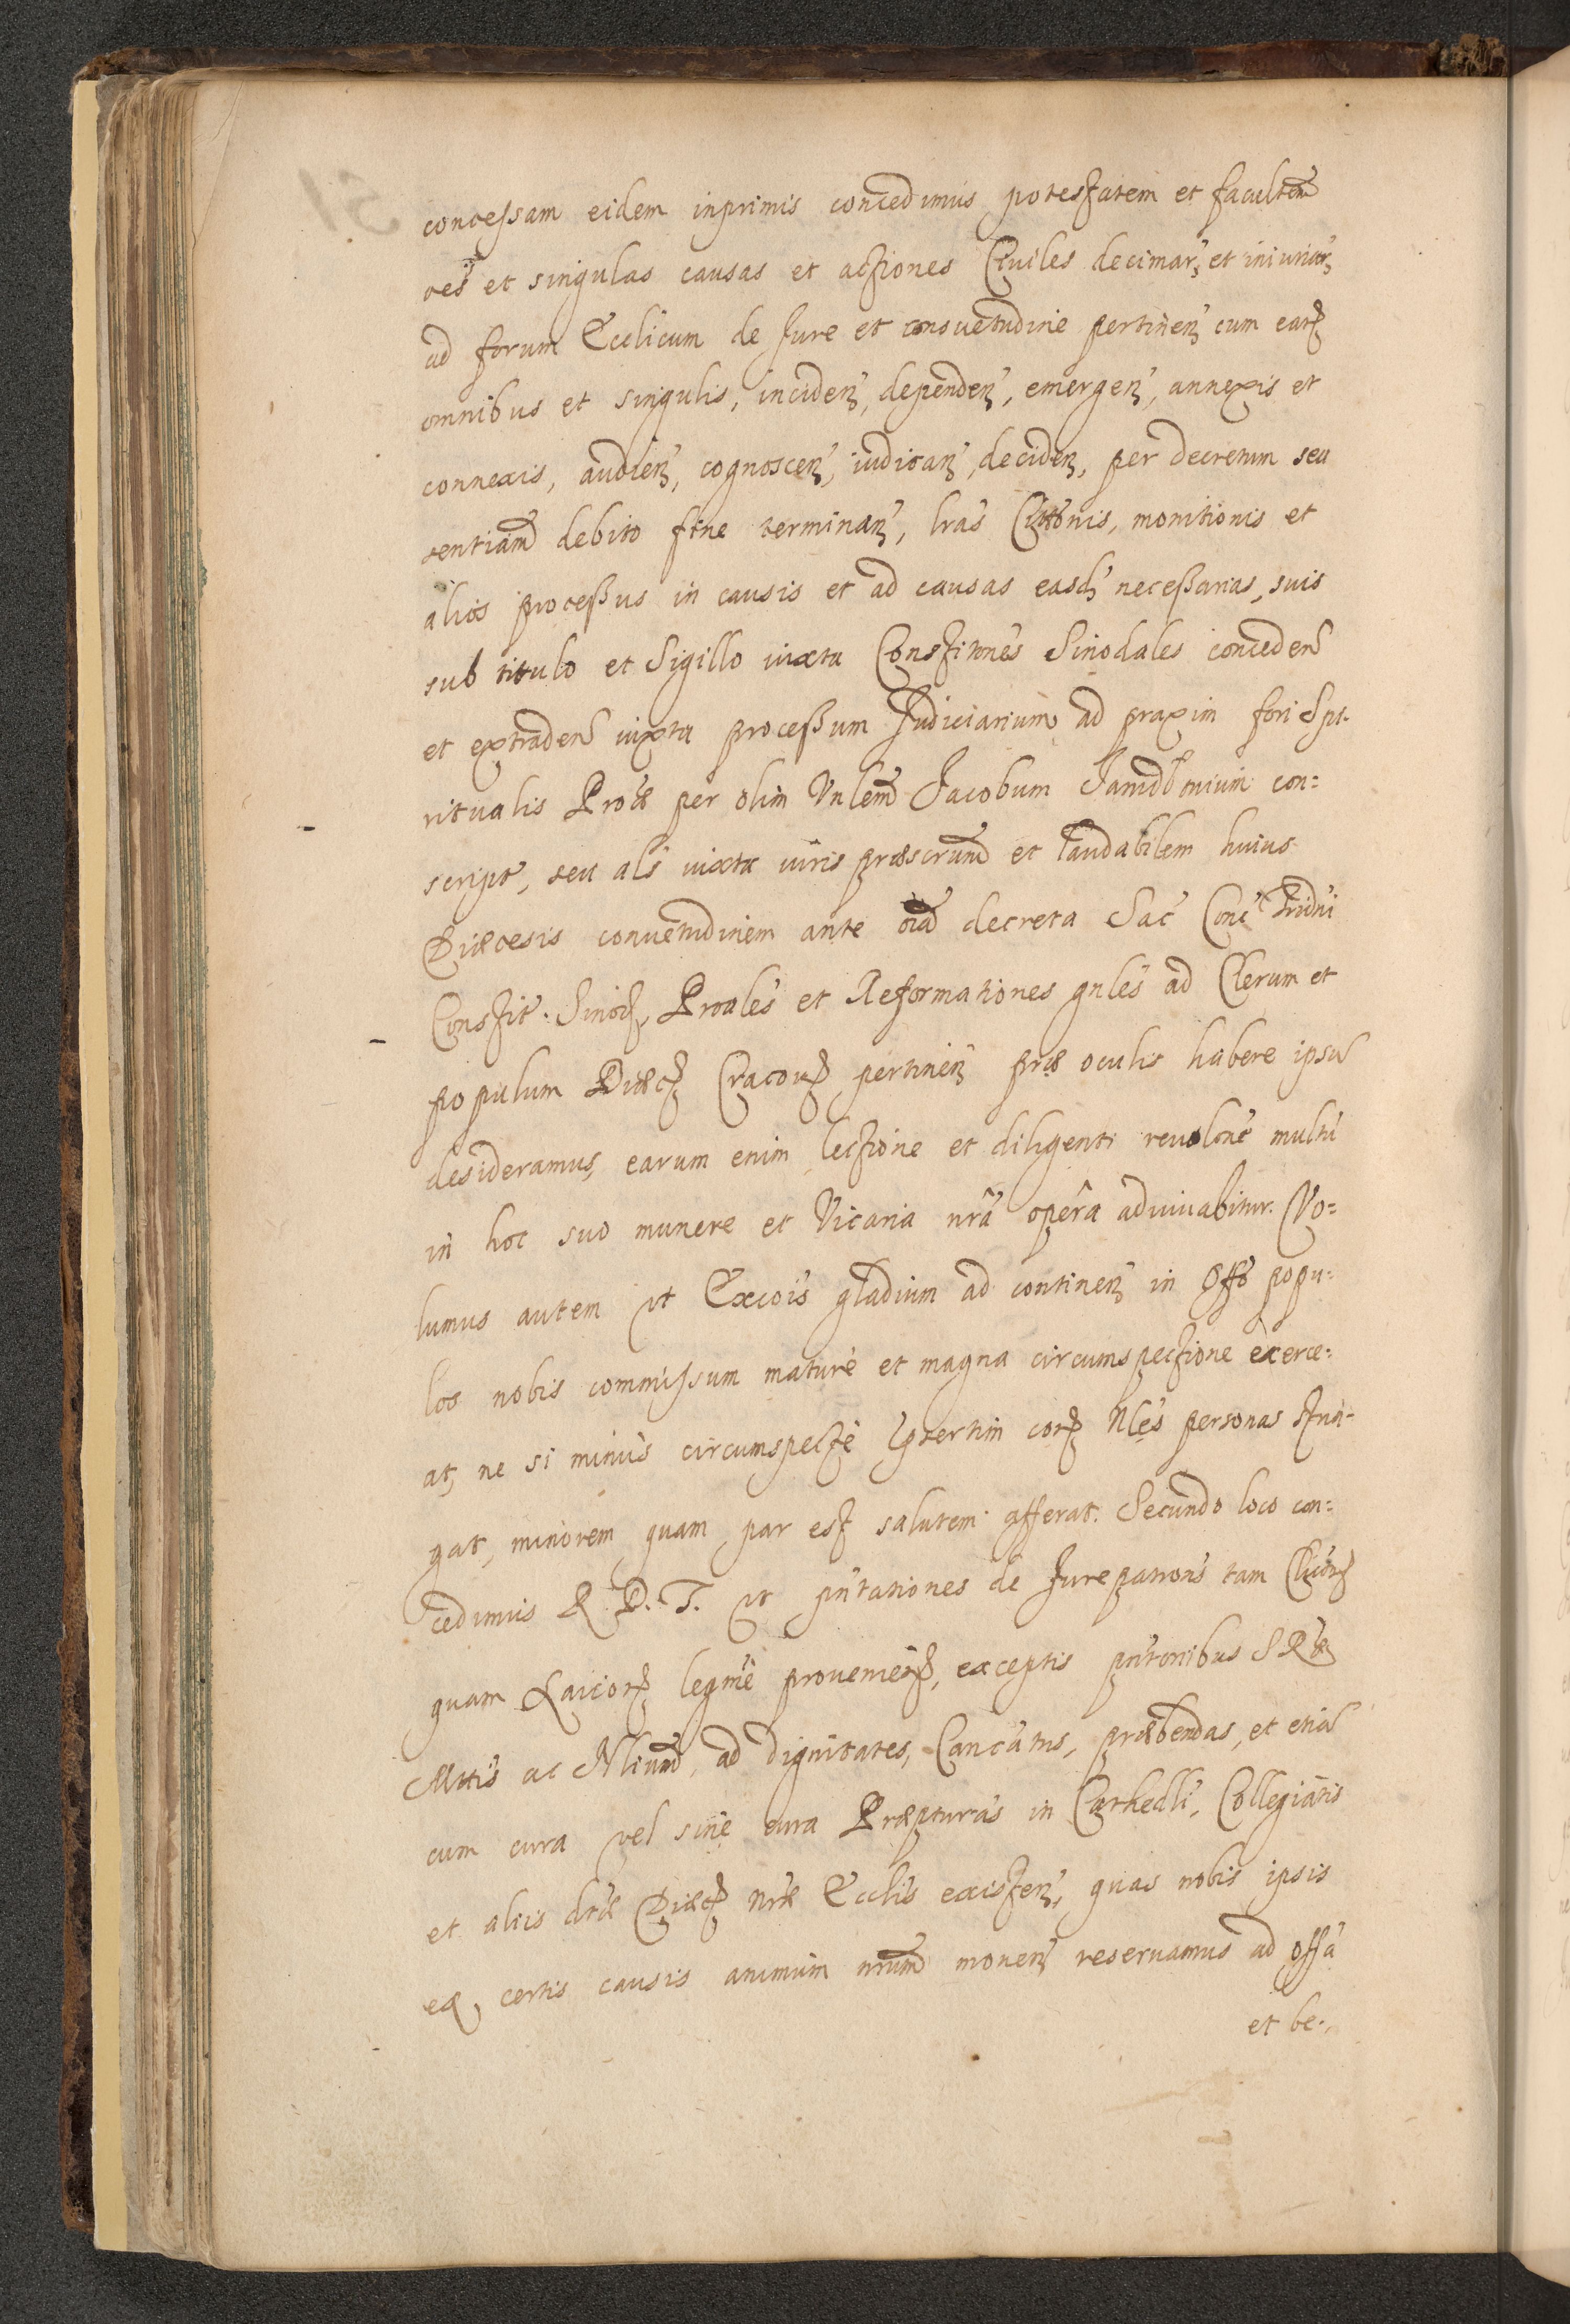 concessam eidem inprimis concedimus potestatem et facultem
oes et singulas causas et actiones Ciuiles decimar, et iniuriar,
ad forum Ecclicum de Jure et consuetudine pertinen cum ear
omnibus et singulis, inciden, dependen, emergen, annexis et
connexis, audien, cognoscen, iudican, deciden, per decretum seu
sentiam debito fine terminan, lras Cittonis, monitionis et
alios processus in causis et ad causas easd necessarias, suis
sub titulo et Sigillo iuxta Constitones Sinodales conceden
et extraden iuxta processum Judiciarium ad praxim fori Spi-
ritualis Proæ per olim Vnlem Jacobum Janidlouium con=
script, seu als iuxta iuris præscrium et laudabilem huius
Diæcesis conuetudinem ante oia decreta Sac Conc Tridni
Constit. Sinod, Proales et Reformationes gnles ad Clerum et
populum Diæc Cracou pertinen præ oculis habere ipsu
desideramus, earum enim lectione et diligenti reuolone multu
in hoc suo munere et Vicaria nra opera adiuuabitur. Vo=
lumus autem vt Excois gladium ad continen in offo popu=
los nobis commissum maturè et magna circumspectione exerce=
at, ne si minus circumspectè cor Nles personas stin-
gat, minorem quam par est salutem afferat. Secundo loco con=
cedimus R. D. T. vt pntationes de Jurepatrons tam Clicor
quam Laicor legme prouenien, exceptis pntonibus S Ræ
Mttis ac Nlium, ad dignitates, Cancatus, præbendas, et etia
cum cura vel sine cura Præpturas in Cathedli, Collegiatis
et aliis dtæ Diæc nræ Ecclis existen, quas nobis ipsis
ex certis causis animum nrum mouen reseruamus ad offa
et be.